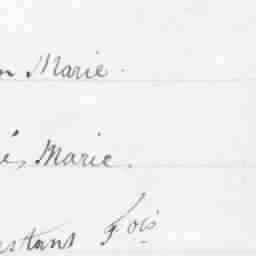 n Marie.
é, Marie.
stant Fois